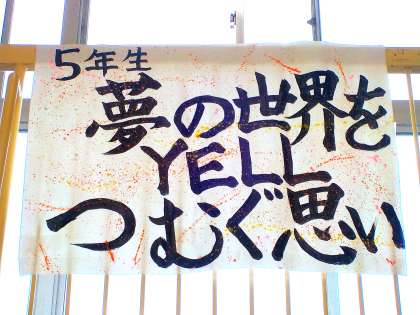 5年生
夢の世界を
YELL
つむぐ思い